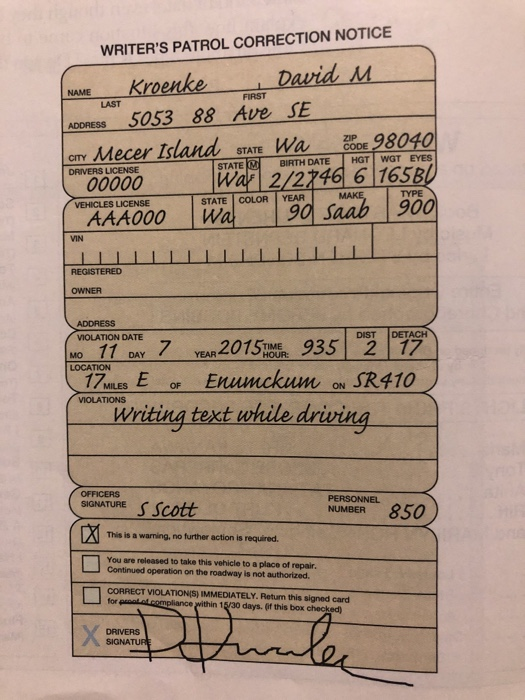 WRITER'S PATROL CORRECTION NOTICE
NAME Kroenke David M
LAST FIRST
ADDRESS 5053 88 Ave SE
CITY Mecer Island STATE Wa ZIP CODE 98040
DRIVERS LICENSE STATE M F BIRTH DATE HGT WGT EYES
00000 Wa 2/27/46 6 165 BL
VEHICLES LICENSE STATE COLOR YEAR MAKE TYPE
AAA000 Wa 90 Saab 900
VIN
REGISTERED
OWNER
ADDRESS
VIOLATION DATE DIST DETACH
MO 11 DAY 7 YEAR 2015 TIME HOUR: 935 2 17
LOCATION
17 MILES E OF Enumckum ON SR410
VIOLATIONS
Writing text while driving
OFFICERS SIGNATURE S Scott PERSONNEL NUMBER 850
X This is a warning, no further action is required.
You are released to take this vehicle to a place of repair.
Continued operation on the roadway is not authorized.
CORRECT VIOLATION(S) IMMEDIATELY. Return this signed card
for proof of compliance within 15/30 days. (if this box checked)
X DRIVERS SIGNATURE